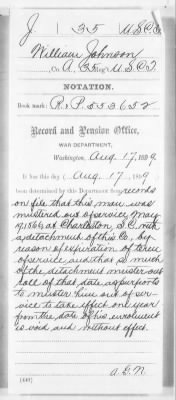 J. 35 U.S.C.T.
William Johnson
Co. A, 35 Reg't U.S.C.T.
NOTATION.
Book mark: R. & P. 553652
Record and Pension Office,
WAR DEPARTMENT,
Washington, Aug. 17, 1899.
It has this day (Aug. 17, 1899)
been determined by this Department from records
on file that this man was
mustered out of service May
1866, at Charleston S.C. with
a detachment of this Co., by
reason of expiration of term
of service and that so much
of the detachment muster-out
roll of that date as purports
to muster him out of ser-
vice to take effect one year
from the date of his enrolment
is void and without effect.
(449)